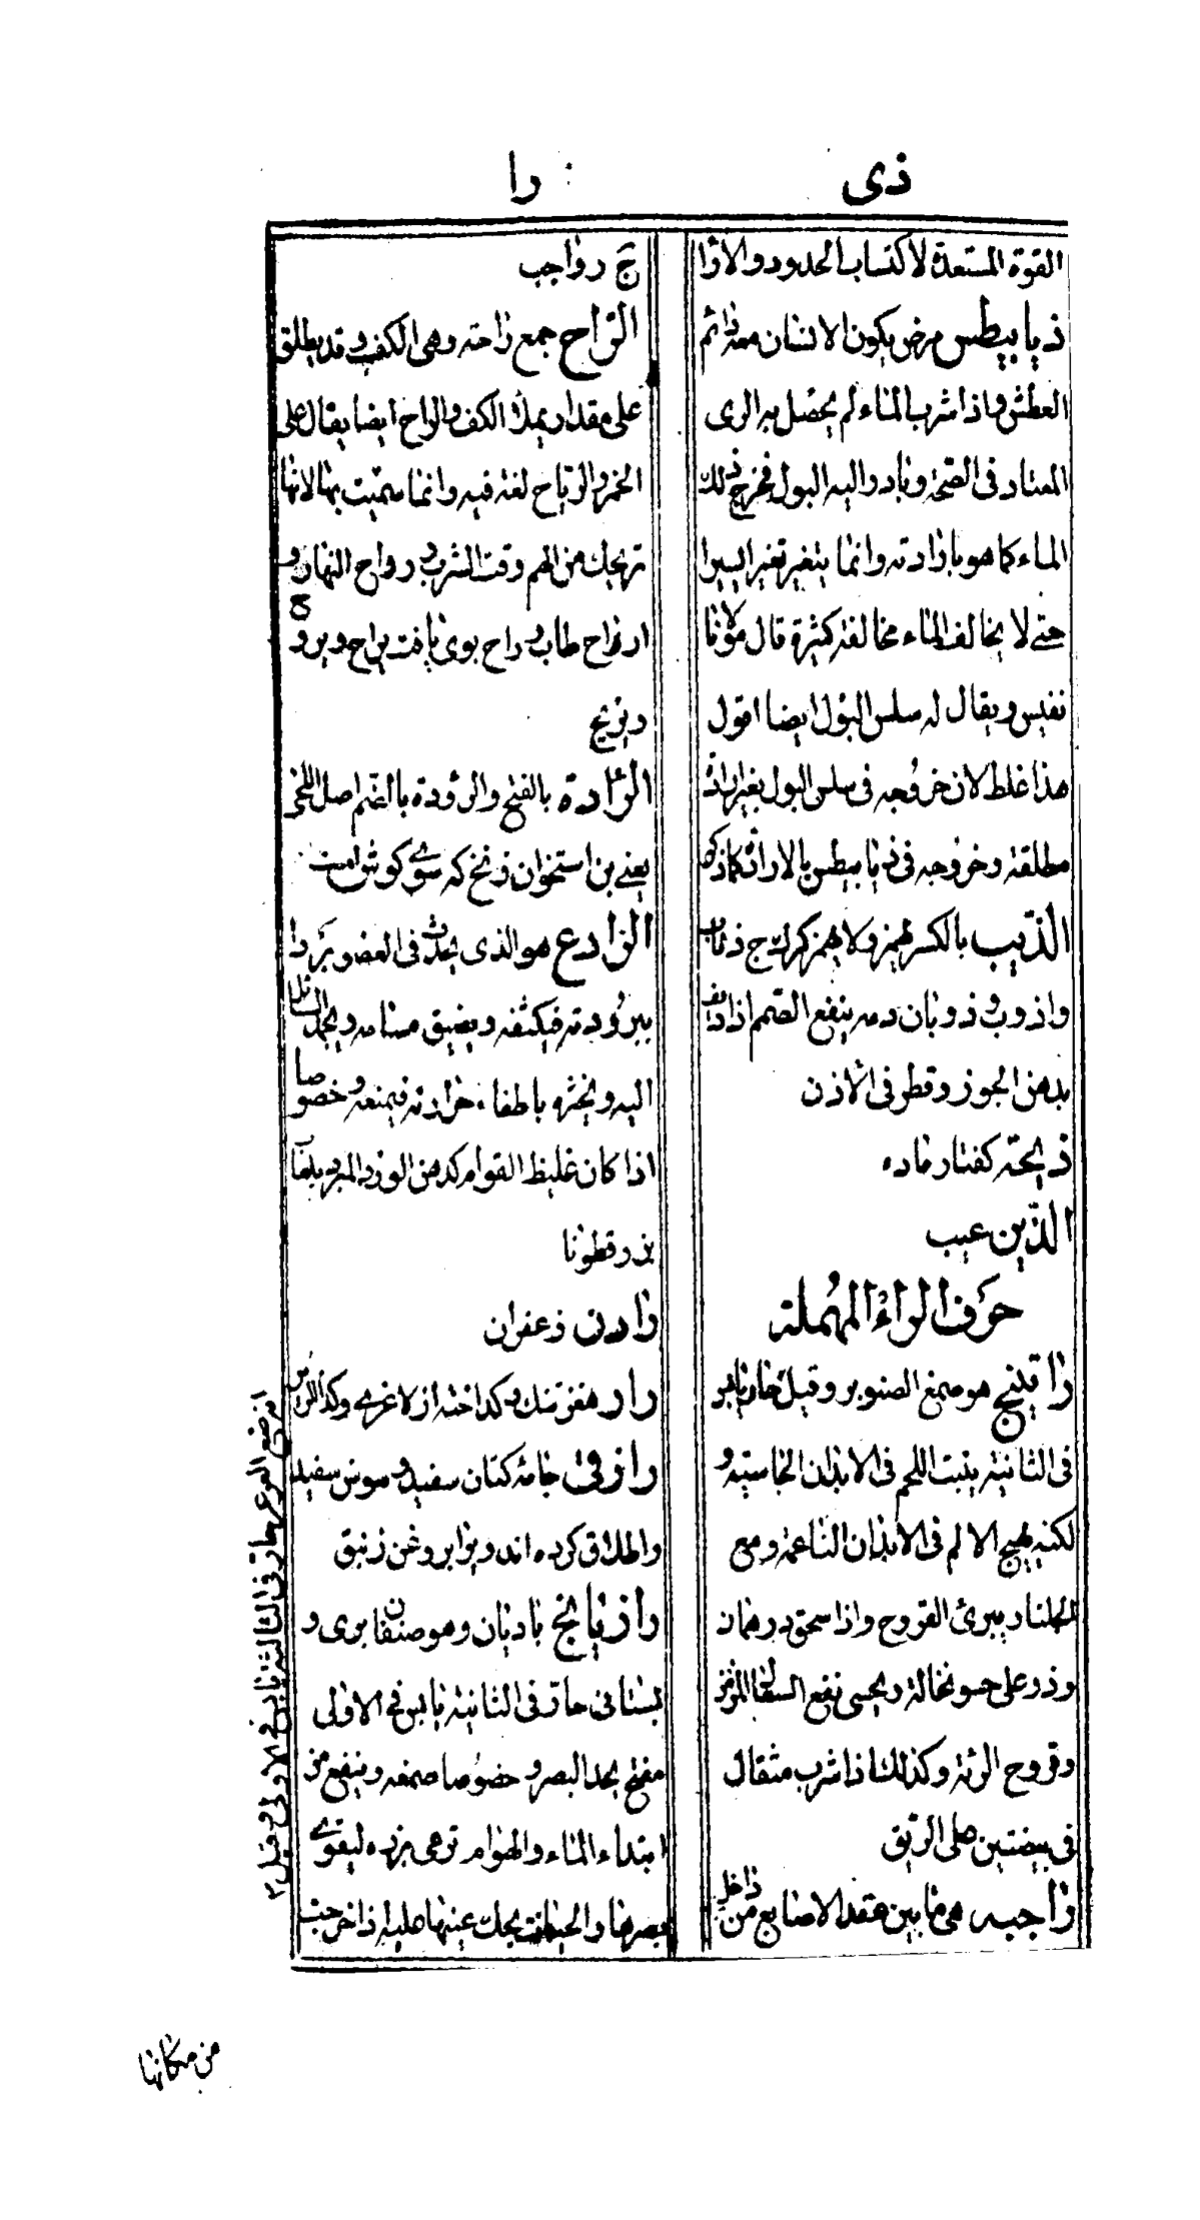 ذی
را
القوة المستعدة لاکتساب الحدود والآرا
ذیابیطس مرض یکون الانسان معه دائم
العطش و اذا شرب الماء لم یحصل به الری
المعتاد فی الصحة و بادر الیه البول فخرج ذلک
الماء کما هو بارادته و انما یتغیر تغیرا یسیرا
حتی لا یخالف الماء مخالفة کثیرة قال مولانا
نفیس و یقال له سلس البول ایضا اقول
هذا غلط لان خروجه فی سلس البول بغیر ارادة
مطلقة و خروجه فی ذیابیطس بالارادة کما ذکر
الذیب بالکسر یهمز ولا یهمز کرک ج ذئاب
و اذوب و ذوبان دمه ینفع الصمم اذا دیف
بدهن الجوز و قطر فی الاذن
ذیحه کفتار ماده
الذین عیب
حرف الراء المهملة
راتینج هو صمغ الصنوبر و قیل حار یابس
فی الثانیة ینبت اللحم فی الابدان الجاسیة و
لکنه یهیج الالم فی الابدان الناعمة و مع
الجلنار یبرئ القروح و اذا سحق درهمان
و ذر علی حسو نخالة و یحسی نفع السعال المزمن
و قروح الرئة و کذلک اذا شرب مثقال
فی بیضتین علی الریق
راجبه هی ما بین عقد الاصابع من داخل
ج رواجب
الراح جمع راحته و هی الکف و قد یطلق
علی مقدار یملأ الکف و الراح ایضا یقال علی
الخمر و الریاح لغة فیه و انما سمیت بها لانها
تریحک من الهم وقت الشرب و رواح النهار و
ارواح طاب و راح بوی یافت یراح و یرو
ح
و یریح
الرادة بالفتح و الرؤدة بالضم اصل اللحی
یعنی بن استخوان زنخ که سوی کوش است
الرادع هو الذی یحدث فی العضو بردا
ببرودته فیکثفه و یضیق مسامه و یجمد السائل
الیه و یخثره باطفاء حرارته فیمنعه و خصوصا
اذا کان غلیظ القوام کدهن الورد المبرد بلعاب
بزر قطونا
رادن زعفران
رار مغز تنک و کداخته از لاغری و کذا الریر
رازقی جامه کتان سفید و سوسن سفید
و اطلاق کرده اند و برابر روغن زنبق
رازیانج بادیان و هو صنفان بری و
بستانی حار فی الثانیة یابس فی الاولی
مفتح یحد البصر و خصوصا صمغه و ینفع من
ابتداء الماء و الهوام ترعی بزره لیقوی
بصرها و الحیات یحک عینها علیه اذا خرجت
حار فی الثالثة یابس فی الاولی و قیل
من مکانها